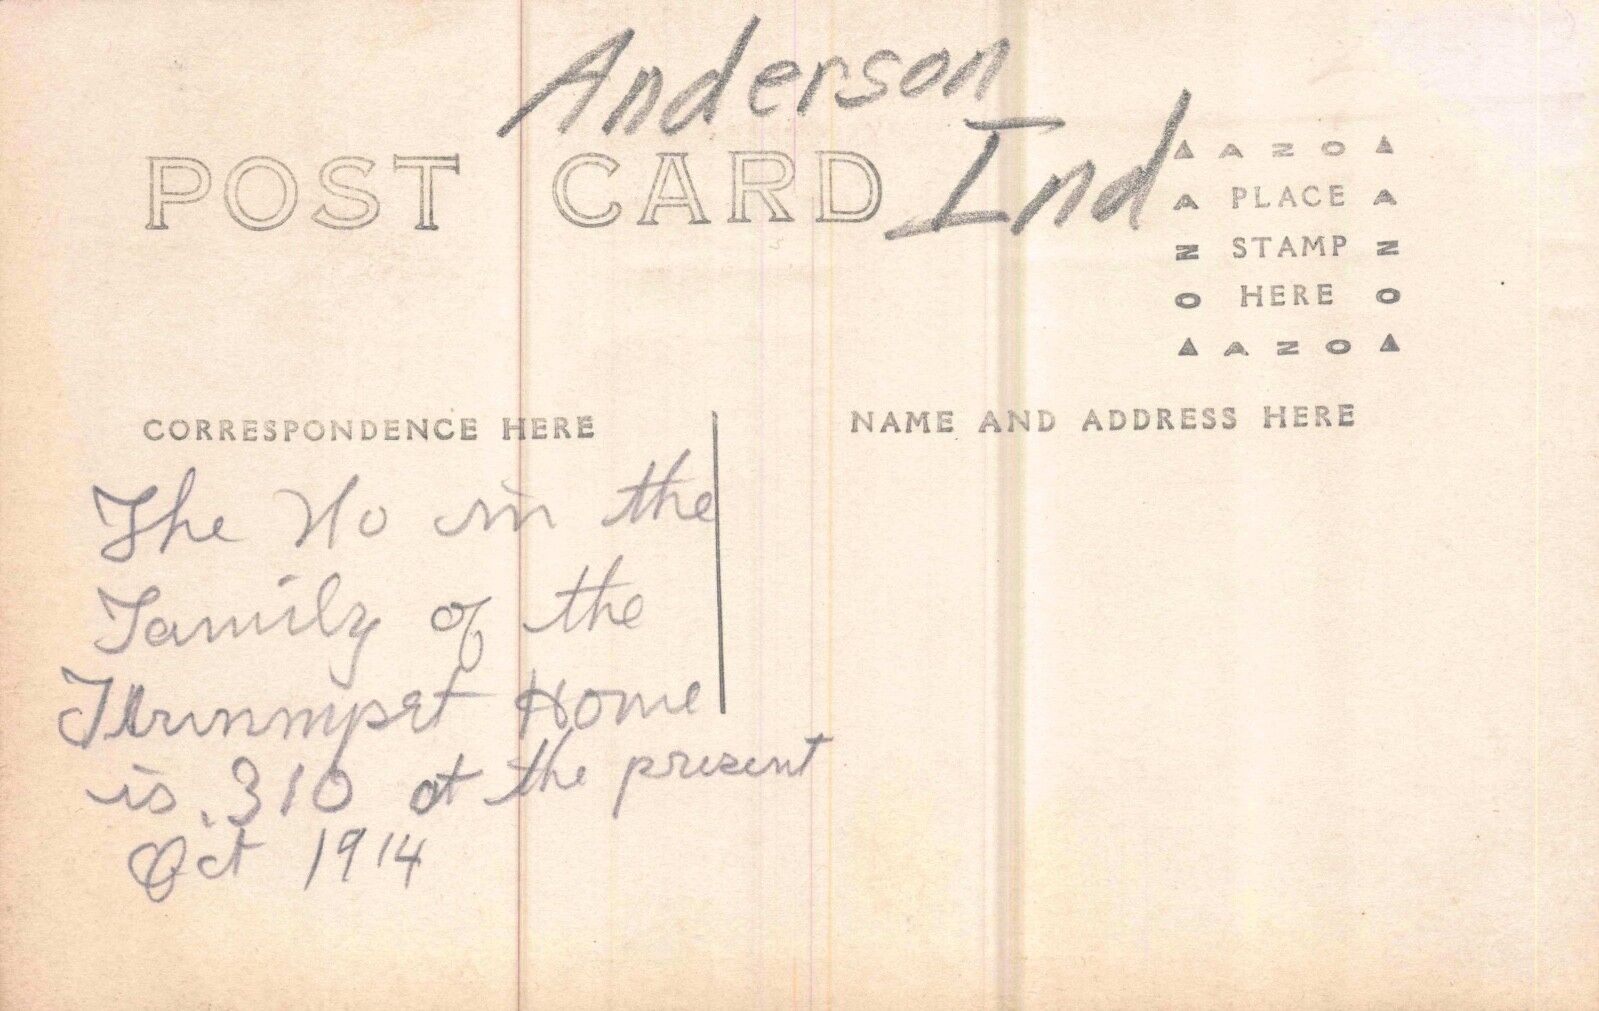 Anderson
Ind
POST CARD
▲ AZO ▲
A PLACE A
Z STAMP Z
O HERE O
▲ AZO ▲
CORRESPONDENCE HERE
NAME AND ADDRESS HERE
The No in the
Family of the
Trummpet Home
is 310 at the present
Oct 1914